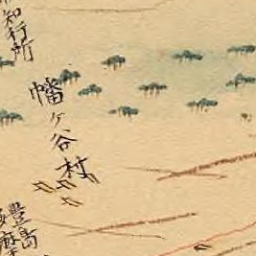 知行所
幡ヶ谷村
豊島